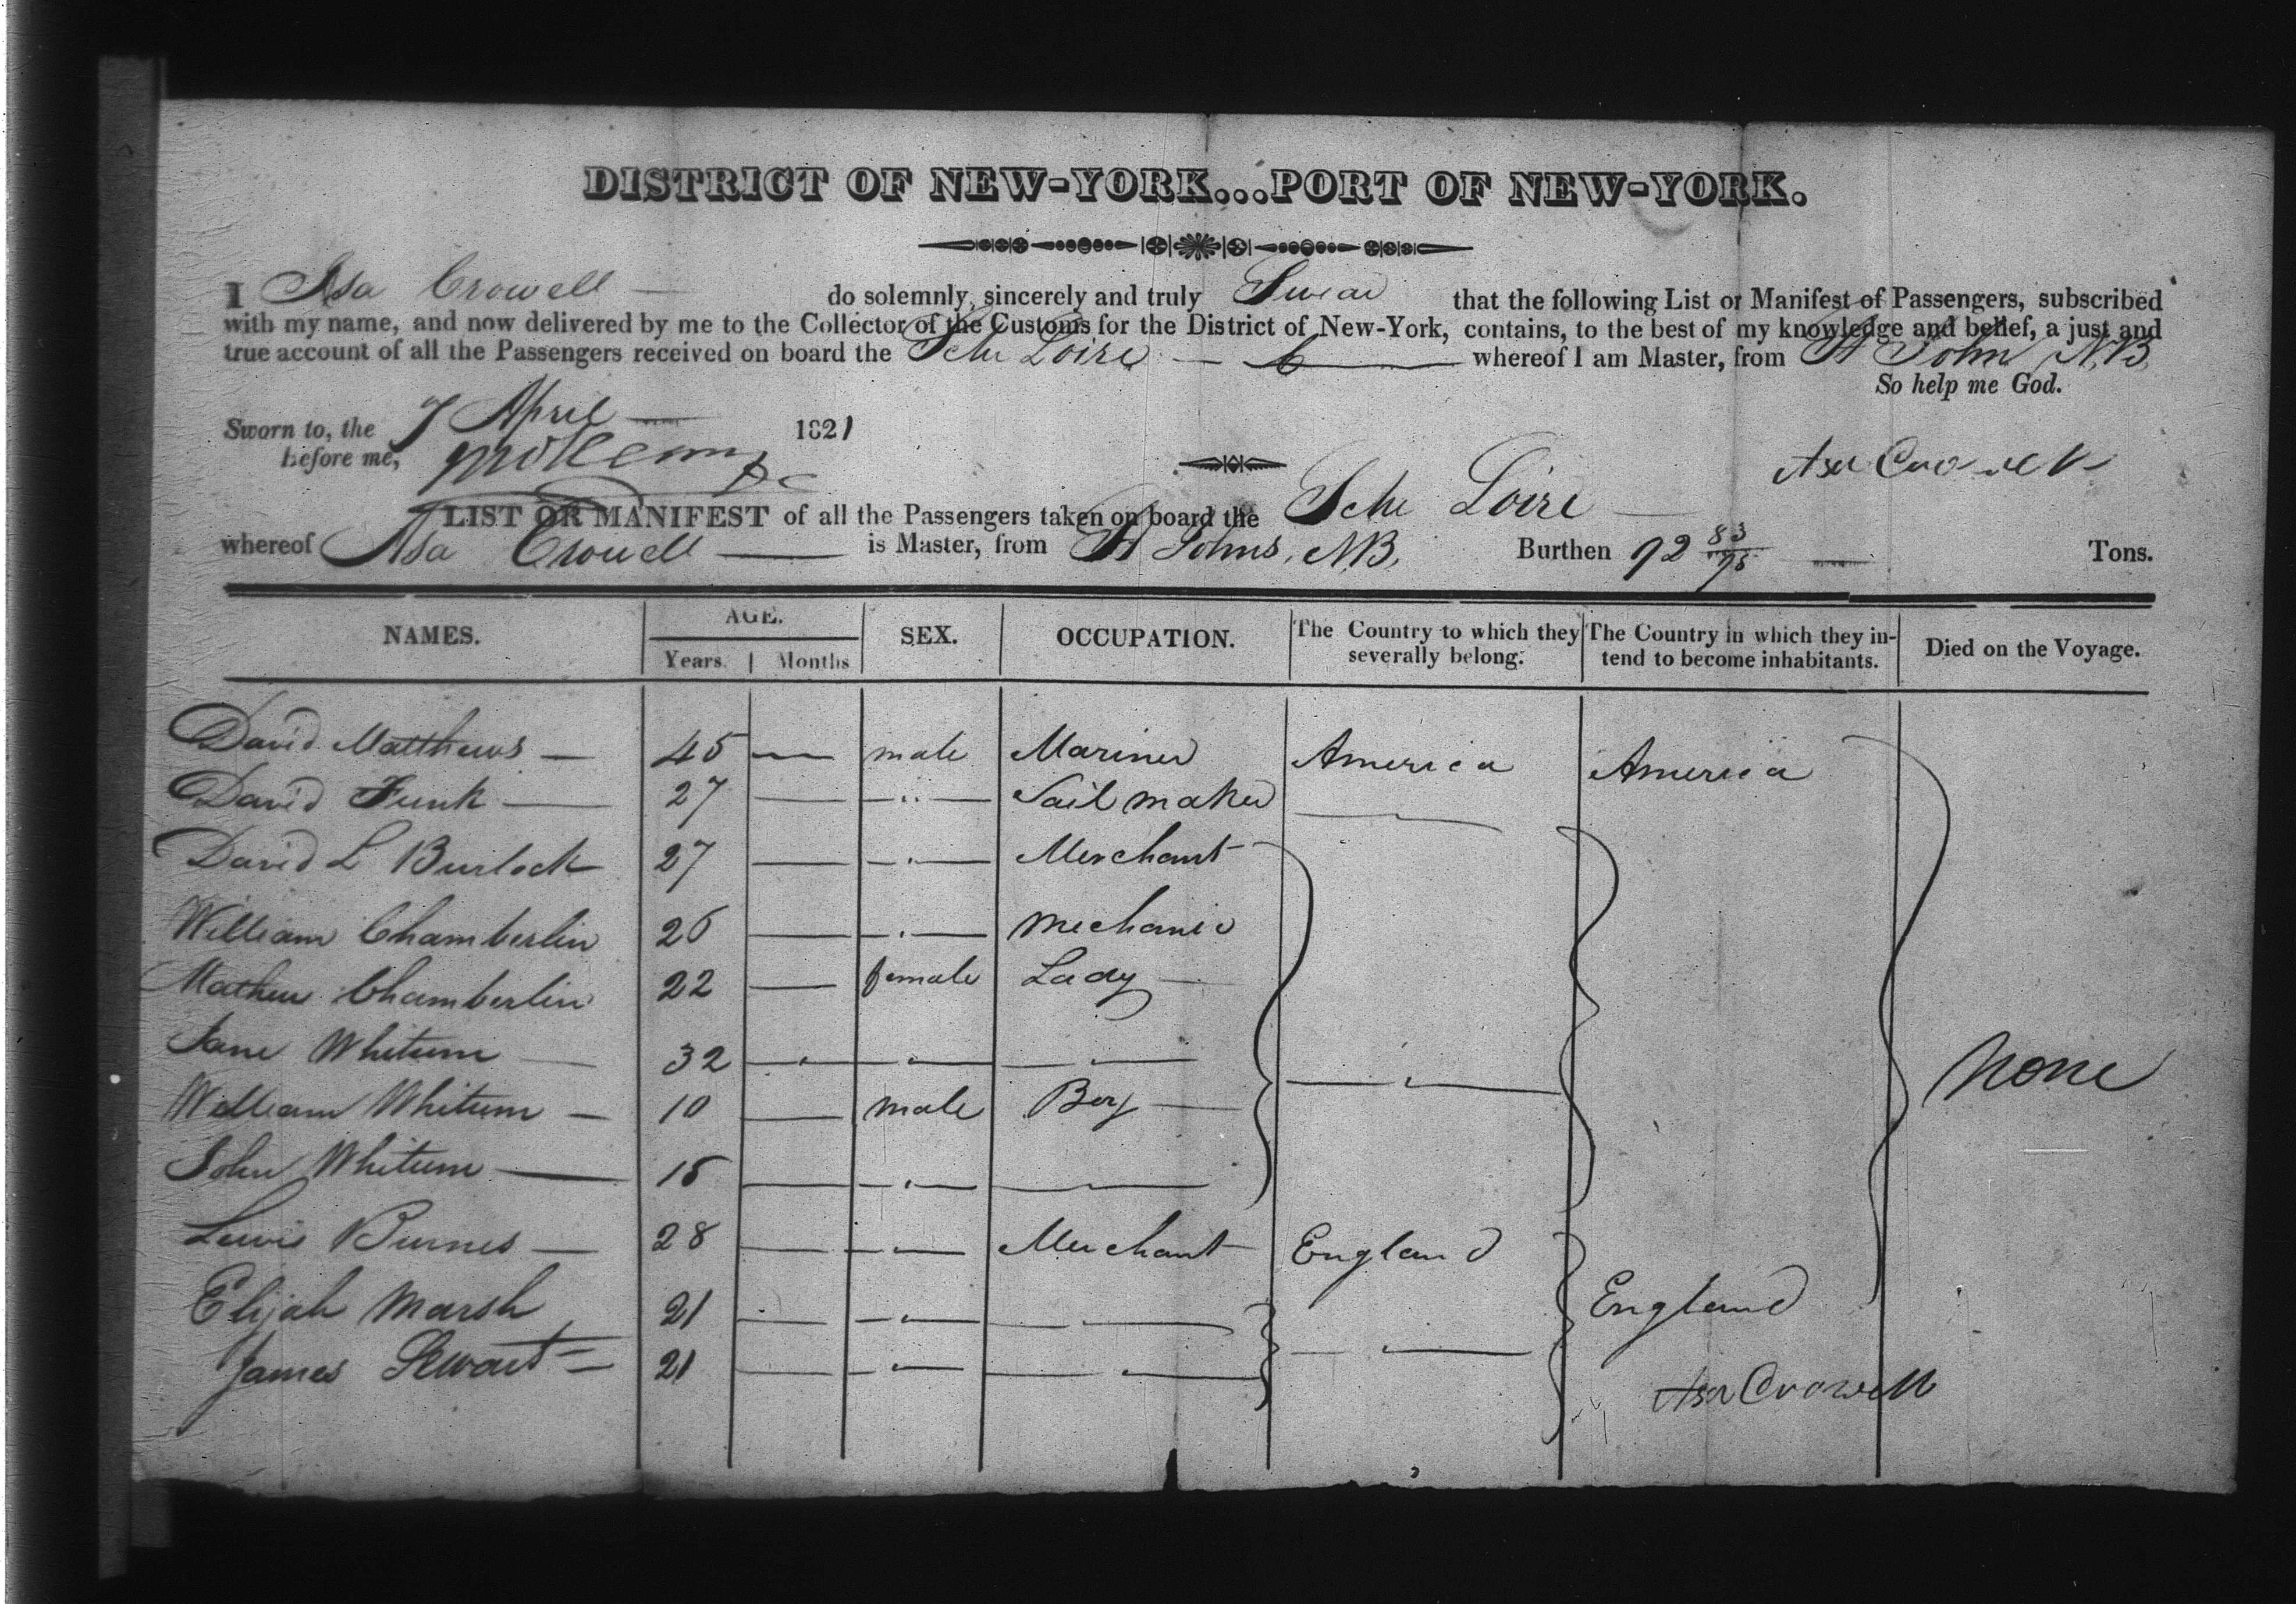 DISTRICT OF NEW-YORK...PORT OF NEW-YORK.
I Asa Crowell — do solemnly, sincerely and truly Swear that the following List or Manifest of Passengers, subscribed
with my name, and now delivered by me to the Collector of the Customs for the District of New-York, contains, to the best of my knowledge and belief, a just and
true account of all the Passengers received on board the Schr Loire — whereof I am Master, from St John, N.B.
So help me God.
Sworn to, the 7 April — 1821
before me,
Asa Crowell
LIST OR MANIFEST of all the Passengers taken on board the Schr Loire —
whereof Asa Crowell — is Master, from St Johns, N.B. Burthen 92 83/95 — Tons.
NAMES. AGE. SEX. OCCUPATION. The Country to which they severally belong. The Country in which they intend to become inhabitants. Died on the Voyage.
Years. Months
David Matthews — 45 — male Mariner America America
David Funk — 27 — — " — Sail maker —
David L Burlock 27 — — " — Merchant
William Chamberlin 26 — — " — Mechanic
Mathew Chamberlin 22 — female Lady —
Jane Whitum — 32 — " — — " — — " — — " — None
William Whitum — 10 — male Boy —
John Whitum — 15 — — " — — " —
Lewis Burnes — 28 — — " — Merchant England
Elijah Marsh 21 — — " — — " — England
James Stewart — 21 — — " — — " — — " —
Asa Crowell